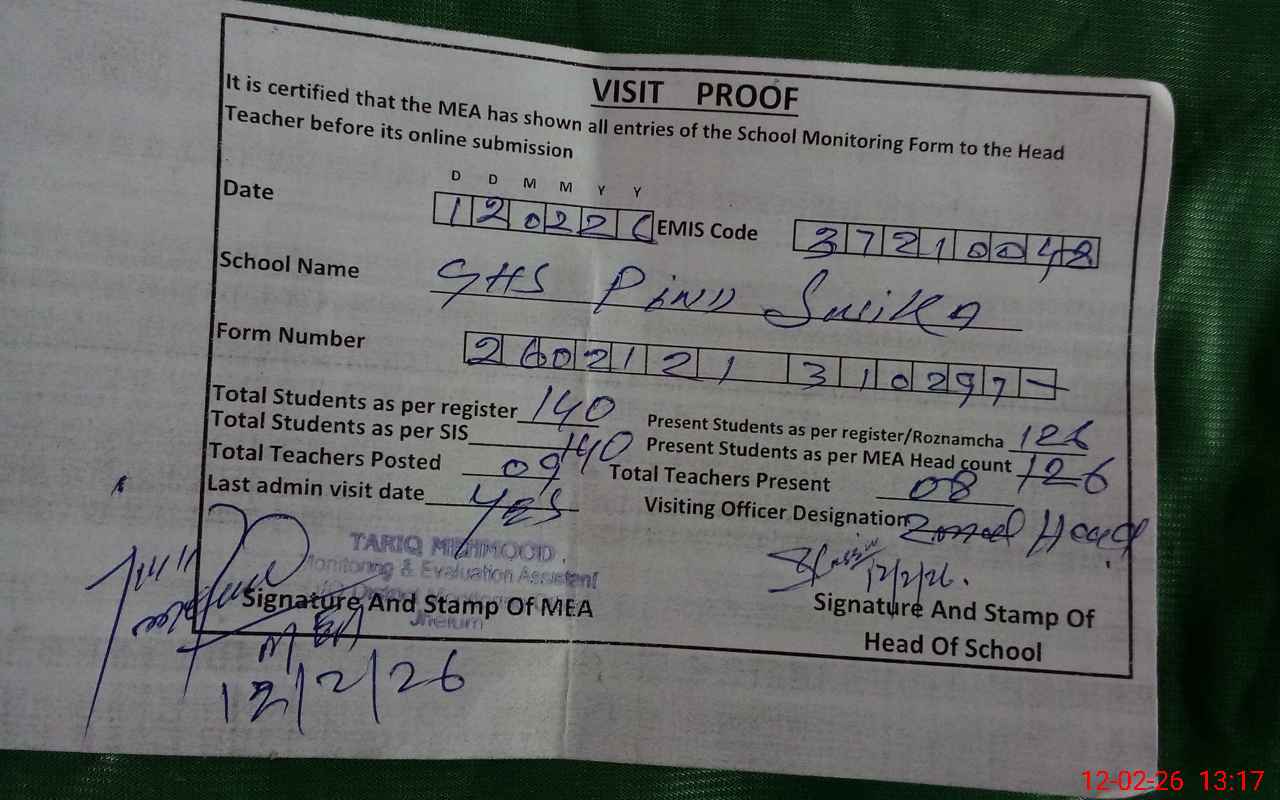 VISIT PROOF
It is certified that the MEA has shown all entries of the School Monitoring Form to the Head
Teacher before its online submission
D D M M Y Y
Date 120226 EMIS Code 37210048
School Name GHS Pind
Form Number 2602121 310297-
Total Students as per register 140 Present Students as per register/Roznamcha 126
Total Students as per SIS 140 Present Students as per MEA Head count 126
Total Teachers Posted 09 Total Teachers Present 08
Last admin visit date YES Visiting Officer Designation Head
TARIQ MEHMOOD
Monitoring & Evaluation Assistent
12/2/26.
Jhelum
Signature And Stamp Of MEA Signature And Stamp Of
Head Of School
MEA
12/2/26
12-02-26 13:17